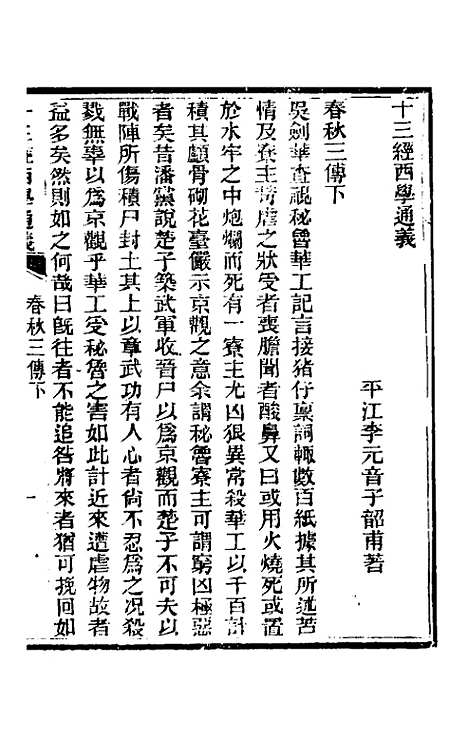 十三經西學通義
平江李元音子韶甫著
春秋三傳下
吳劍華查視秘魯華工記言接豬仔稟詞輒數百紙據其所述苦
情及寮主苛虐之狀受者喪膽聞者酸鼻又曰或用火燒死或置
於水牢之中炮爛而死有一寮主尤凶狠異常殺華工以千百計
積其顱骨砌花臺儼示京觀之意余謂秘魯寮主可謂窮凶極惡
者矣昔潘黨說楚子築武軍收晉尸以爲京觀而楚子不可夫以
戰陣所傷積尸封土其上以章武功有人心者尙不忍爲之况殺
戮無辜以爲京觀乎華工受秘魯之害如此計近來遭虐物故者
益多矣然則如之何哉曰旣往者不能追咎將來者猶可挽回如
十三經西學通義
春秋三傳下
一